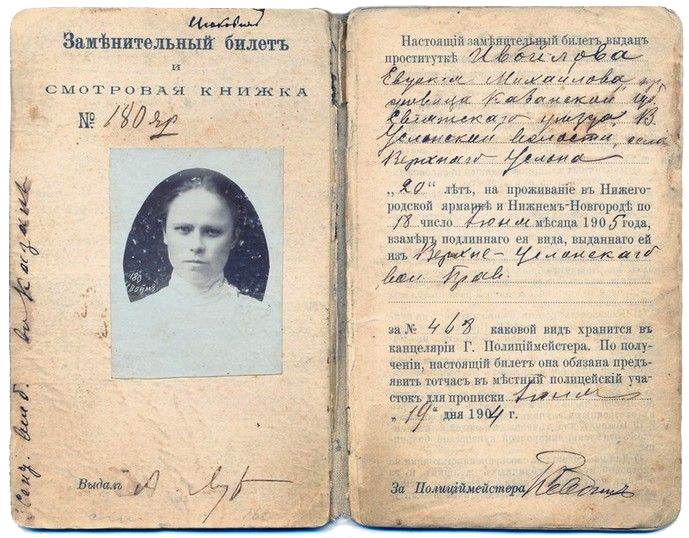 Замѣнительный билетъ
и
СМОТРОВАЯ КНИЖКА
№ 180 яр
180
Выдалъ
въ Казань
Настоящій замѣнительный билетъ выданъ
проституткѣ Ивойлова
Евдокія Михайлова, кр
Казанской гу.
Свіяжскаго уѣзда, В.
Услонской волости, села
Верхняго Услона
„20“ лѣтъ, на проживаніе въ Нижего-
родской ярмаркѣ и Нижнемъ-Новгородѣ по
18 число Іюня мѣсяца 1905 года,
взамѣнъ подлиннаго ея вида, выданнаго ей
изъ Верхне-Услонскаго
вол. Прав.
за № 468 каковой видъ хранится въ
канцеляріи Г. Полиціймейстера. По полу-
ченіи, настоящій билетъ она обязана предъ-
явить тотчасъ въ мѣстный полицейскій уча-
стокъ для прописки Іюня
„19“ дня 1904 г.
За Полиціймейстера